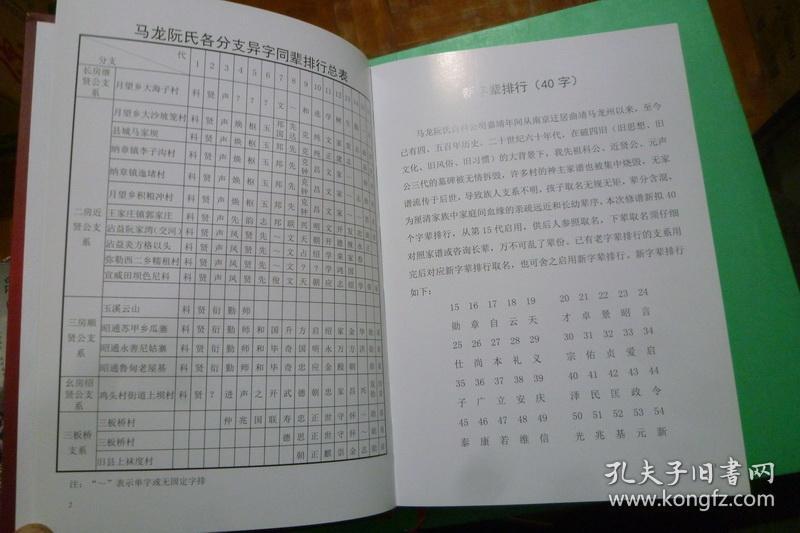 马龙阮氏各分支异字同辈排行总表
分支 代 1 2 3 4 5 6 7 8 9 10 11 12 13
长房继贤公支系
月望乡大海子村 科 贤 声 ? ? ? 文 一 和 选 学
二房近贤公支系
月望乡大沙坡篼村 科 贤 声 焕 枢 玉
县城马家坝 科 贤 声 焕 枢 玉 邦
纳章镇李子沟村 科 贤 声 焕 枢 玉 邦
纳章镇迤堵村 科 贤 声 焕 枢 玉 邦
月望乡积粮冲村 科 贤 声 焕 枢 玉 邦
王家庄镇郭家庄 科 贤 声 先 韵 志 邦 联
沾益阮家湾(交河) 科 贤 声 风 贤 先 一 文 天 朝
沾益炎方格以头 科 贤 声 凤 贤 先 一 文 占 绍 学
弥勒西二乡糯租村 科 贤 声 凤 贤 先 一 文 ? ? 学 鸿 国
宣威田坝色尼科 科 贤 声 凤 贤 先 俊 文 天 朝 应 志
三房顺贤公支系
玉溪云山 科 贤 衍 勤 师
昭通苏甲乡瓜寨 科 贤 衍 勤 师 和 国 升 方 启 绍 家 金
昭通永善尼姑寨 科 贤 衍 勤 师 和 毕 奇 国 明 永 万 方
昭通鲁甸老屋基 科 贤 衍 勤 师 和 毕 奇 国 忠 应 金
幺房绍贤公支系
鸡头村街道上坝村 科 贤 ? 进 声 之 开 武 德 朝 忠 家 昌
三板桥支系
三板桥村 仲 兆 国 联 寿 忠 正 世 守 怀
三板桥村 德 思 正 世 守 怀
旧县上袜度村 朝 正
注：“一”表示单字或无固定字排
2
新字辈排行（40字）
马龙阮氏自科公明嘉靖年间从南京迁居曲靖马龙州以来，至今
已有四、五百年历史。二十世纪六十年代，在破四旧（旧思想、旧
文化、旧风俗、旧习惯）的大背景下，我先祖科公、近贤公、元声
公三代的墓碑被无情拆毁，许多村的神主家谱也被集中烧毁，无家
谱流传于后世，导致族人支系不明，孩子取名无规无矩，辈分含混，
为厘清家族中家庭间血缘的亲疏远近和长幼辈序，本次修谱新拟40
个字辈排行，从第15代启用，供后人参照取名，下辈取名须仔细
对照家谱或咨询长辈，万不可乱了辈份。已有老字辈排行的支系用
完后对应新字辈排行取名，也可舍之启用新字辈排行。新字辈排行
如下：
15 16 17 18 19 20 21 22 23 24
勋 章 自 云 天 才 卓 景 昭 言
25 26 27 28 29 30 31 32 33 34
仕 尚 本 礼 义 宗 佑 贞 爱 启
35 36 37 38 39 40 41 42 43 44
子 广 立 安 庆 泽 民 匡 政 令
45 46 47 48 49 50 51 52 53 54
泰 康 若 维 信 光 兆 基 元 新
孔夫子旧书网
www.kongfz.com